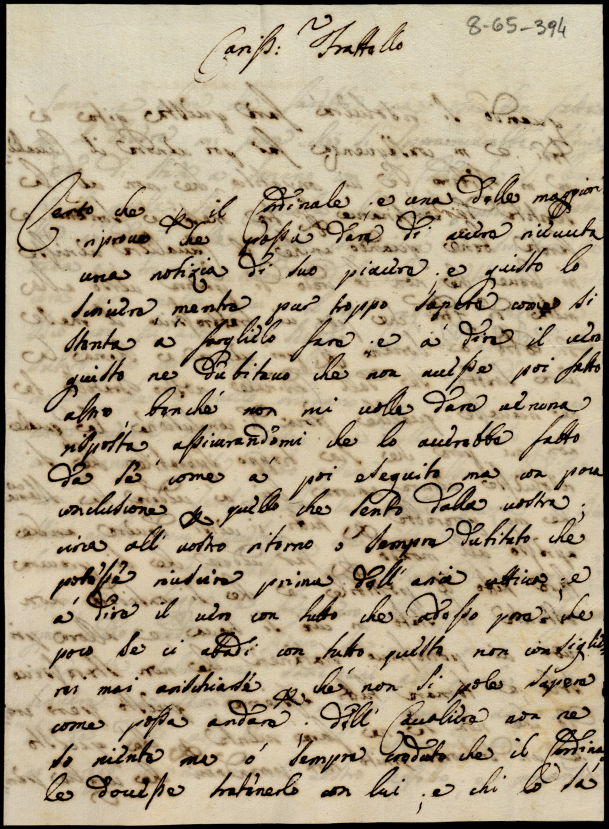 8-65-394
Cariss:mo Fratello
Certo che per il Cardinale e una delle maggiori
riprove che possa dare di avere ricevuta
una notizia di suo piacere e questo lo
scrivere, mentre pur troppo sapete come si
stenta a farglielo fare e à dire il vero
questo ne dubitavo che non avesse poi fatto
altro benche non mi volle dare veruna
risposta assicurandomi che lo averebbe fatto
da sé come à poi eseguito ma con poca
conclusione per quello che sento dalla vostra,
circa all' vostro ritorno ò sempre dubitato che
potesse riuscire prima dell' aria cattiva, e
à dire il vero con tutto che adesso pare che
poco se ci abadi con tutto questo non consiglie
rei mai arischiarsi, perche non si pole sapere
come possa andare. Dell' Cavaliere non ne
so niente ma ò sempre creduto che il Cardina
le dovesse tratenerlo con lui, e chi lo sa